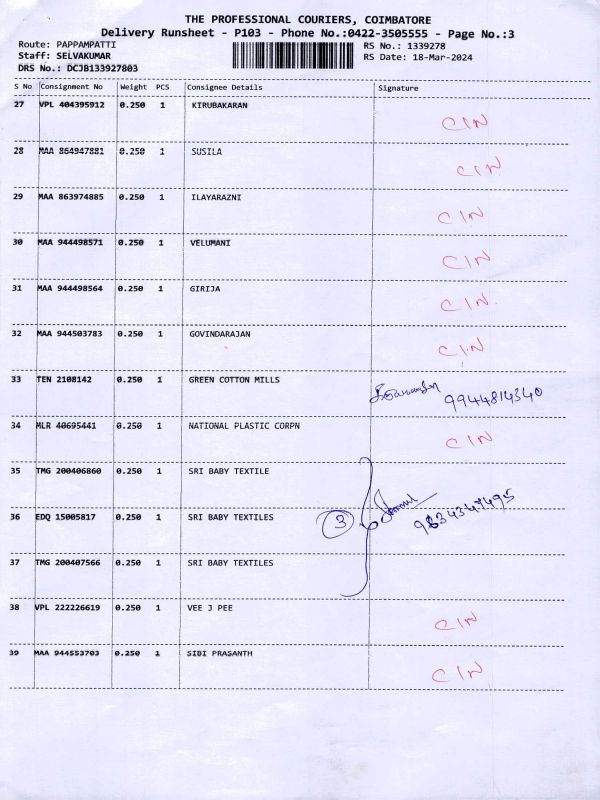 THE PROFESSIONAL COURIERS, COIMBATORE
Delivery Runsheet - P103 - Phone No.:0422-3505555 - Page No.:3
Route: PAPPAMPATTI RS No.: 1339278
Staff: SELVAKUMAR RS Date: 18-Mar-2024
DRS No.: DCJB133927803
S No Consignment No Weight PCS Consignee Details Signature
27 VPL 404395912 0.250 1 KIRUBAKARAN CIN
28 MAA 864947881 0.250 1 SUSILA CIN
29 MAA 863974885 0.250 1 ILAYARAZNI CIN
30 MAA 944498571 0.250 1 VELUMANI CIN
31 MAA 944498564 0.250 1 GIRIJA CIN
32 MAA 944503783 0.250 1 GOVINDARAJAN CIN
33 TEN 2108142 0.250 1 GREEN COTTON MILLS 9944814340
34 MLR 40695441 0.250 1 NATIONAL PLASTIC CORPN CIN
35 TMG 200406860 0.250 1 SRI BABY TEXTILE
36 EDQ 15005817 0.250 1 SRI BABY TEXTILES 3
37 TMG 200407566 0.250 1 SRI BABY TEXTILES
38 VPL 222226619 0.250 1 VEE J PEE CIN
39 MAA 944553703 0.250 1 SIBI PRASANTH CIN